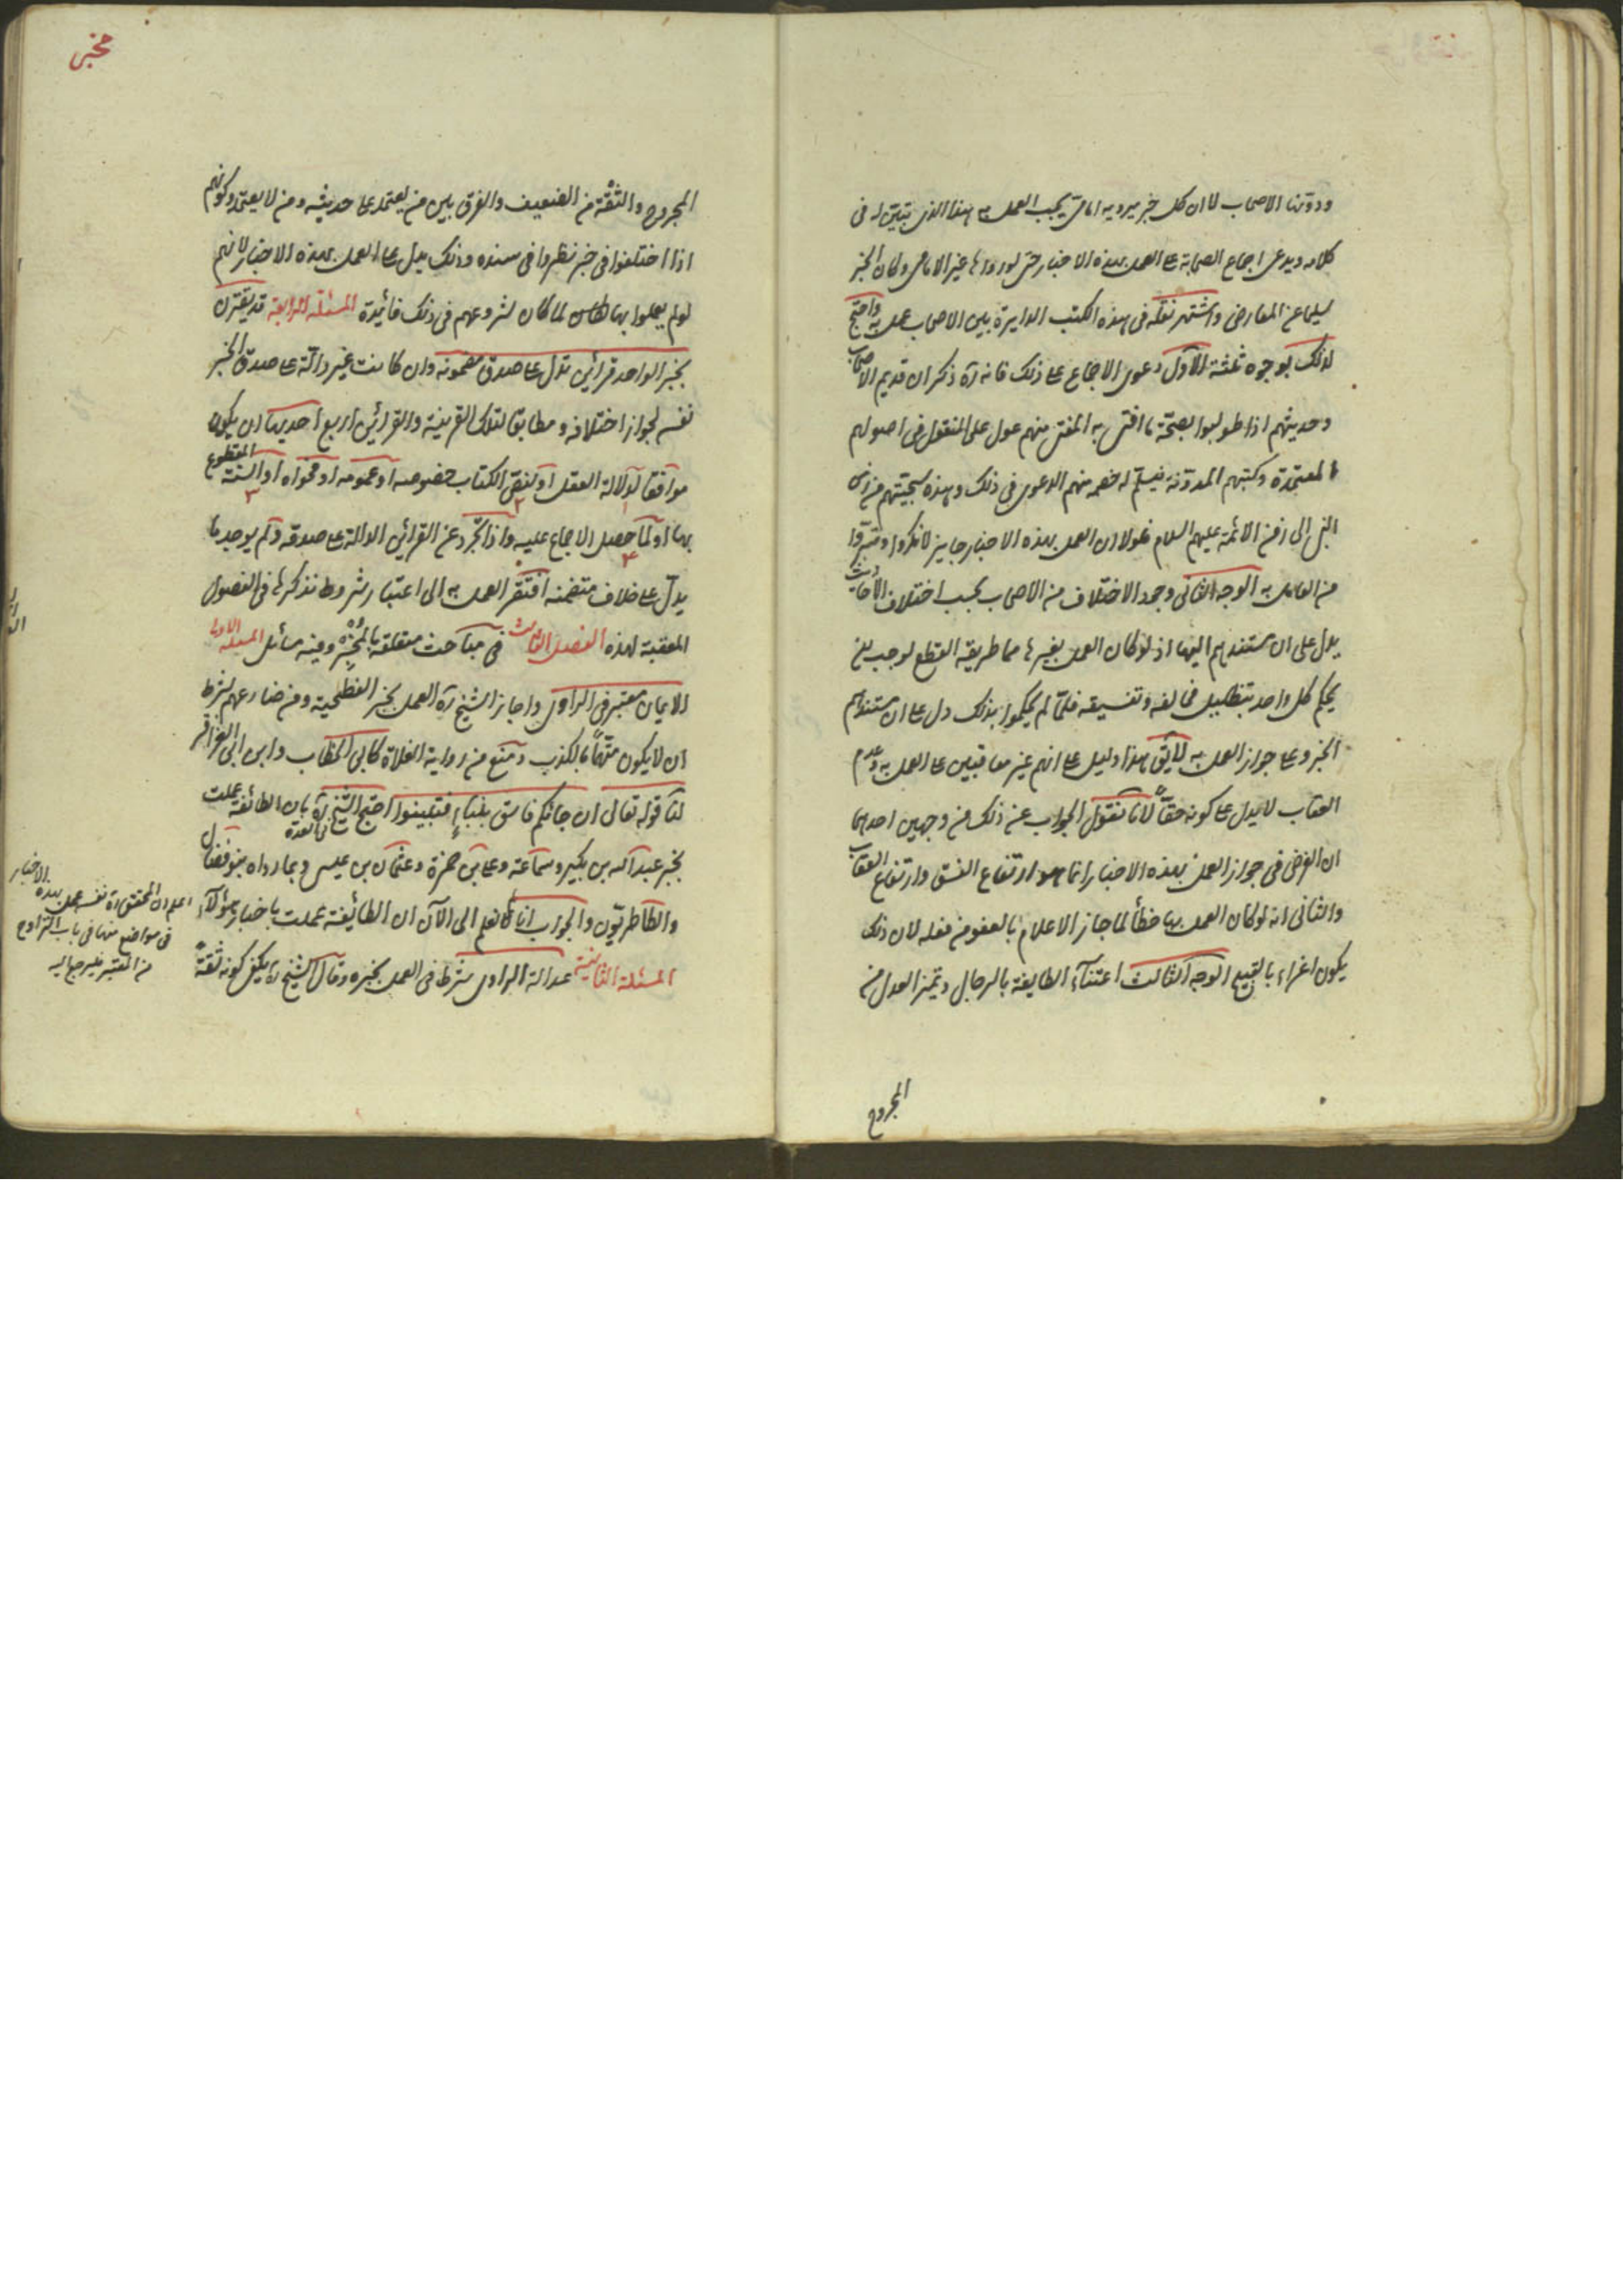 ودوّنها الاصحاب لا ان كل خبر يرويه امامي يجب العمل به هذا الذي تبيّن له في
كلامه ويدعى اجماع الصحابة على العمل بهذه الاخبار حتى لو رواها غير الامامي وكان الخبر
سليما عن المعارض واشتهر نقله في هذه الكتب الدايرة بين الاصحاب عمل به واحتج
لذلك بوجوه ثلثة الاول دعوى الاجماع على ذلك فانه ره ذكر ان قديم الاصحاب
وحديثهم اذا طولبوا بصحة ما افتى به المفتى منهم عول على المنقول في اصولهم
المعتمدة وكتبهم المدونة فيسلم له خصمه منهم الدعوى في ذلك وهذه سجيتهم من زمن
النبي الى زمن الائمة عليهم السلام فلولا ان العمل بهذه الاخبار جايز لانكروا وتبرؤا
من العامل به الوجه الثاني وجود الاختلاف من الاصحاب بحسب اختلاف الاحاديث
يدل على ان مستندهم اليها اذ لو كان العمل بغيرها مما طريقه القطع لوجب ان
يحكم كل واحد بتضليل مخالفه وتفسيقه فلما لم يحكموا بذلك دل على ان مستندهم
الخبر وعلى جواز العمل به لا يق هذا دليل على انهم غير معاقبين على العمل به وعدم
العقاب لا يدل على كونه حقا لانا نقول الجواب عن ذلك من وجهين احدهما
ان الغرض في جواز العمل بهذه الاخبار انما هو ارتفاع الفسق وارتفاع العقاب
والثاني انه لو كان العمل بها خطأ لما جاز الاعلام بالعفو من فعله لان ذلك
يكون اغراء بالقبيح الوجه الثالث اعتناء الطايفة بالرجال وتميز العدل من
المجروح
مخبر
المجروح والثقة من الضعيف والفرق بين من يعتمد على حديثه ومن لا يعتمد وكونهم
اذا اختلفوا في خبر نظروا في سنده وذلك يدل على العمل بهذه الاخبار لانهم
لو لم يعملوا بها لما كان لشروعهم في ذلك فائدة المسئلة الرابعة قد يقترن
بخبر الواحد قرائن تدل على صدق مضمونه وان كانت غير دالة على صدق الخبر
نفسه لجواز اختلافه ومطابق لتلك القرينة والقرائن اربع احديها ان يكون
موافقا لدلالة العقل او لنص الكتاب خصوصه او عمومه او فحواه او السنة المقطوع
بها او لما حصل الاجماع عليه واذا تجرد عن القرائن الدالة على صدقه ولم يوجد ما
يدل على خلاف متضمنه افتقر العمل به الى اعتبار شروط نذكرها في الفصول
المعقبة لهذه الفصل الثالث في مباحث متعلقة بالمخبر وفيه مسائل المسئلة الاولى
الايمان معتبر في الراوي واجاز الشيخ ره العمل بخبر الفطحية ومن ضارعهم بشرط
ان لا يكون متهما بالكذب ومنع من رواية الغلاة كابي الخطاب وابن ابي العزاقر
لنا قوله تعالى ان جائكم فاسق بنباء فتبينوا احتج الشيخ ره بان الطائفة عملت
بخبر عبد الله بن بكير وسماعة وعلى بن حمزة وعثمان بن عيسى وبما رواه بنو فضال
والطاطريون والجواب انا لا نعلم الى الآن ان الطائفة عملت باخبار هؤلاء
المسئلة الثانية عدالة الراوي شرط في العمل بخبره وقال الشيخ ره يكفى كونه ثقة
اعلم ان المحقق ره نفسه عمل بهذه الاخبار
في مواضع منها في باب التراوح
من المعتبر فليرجع اليه